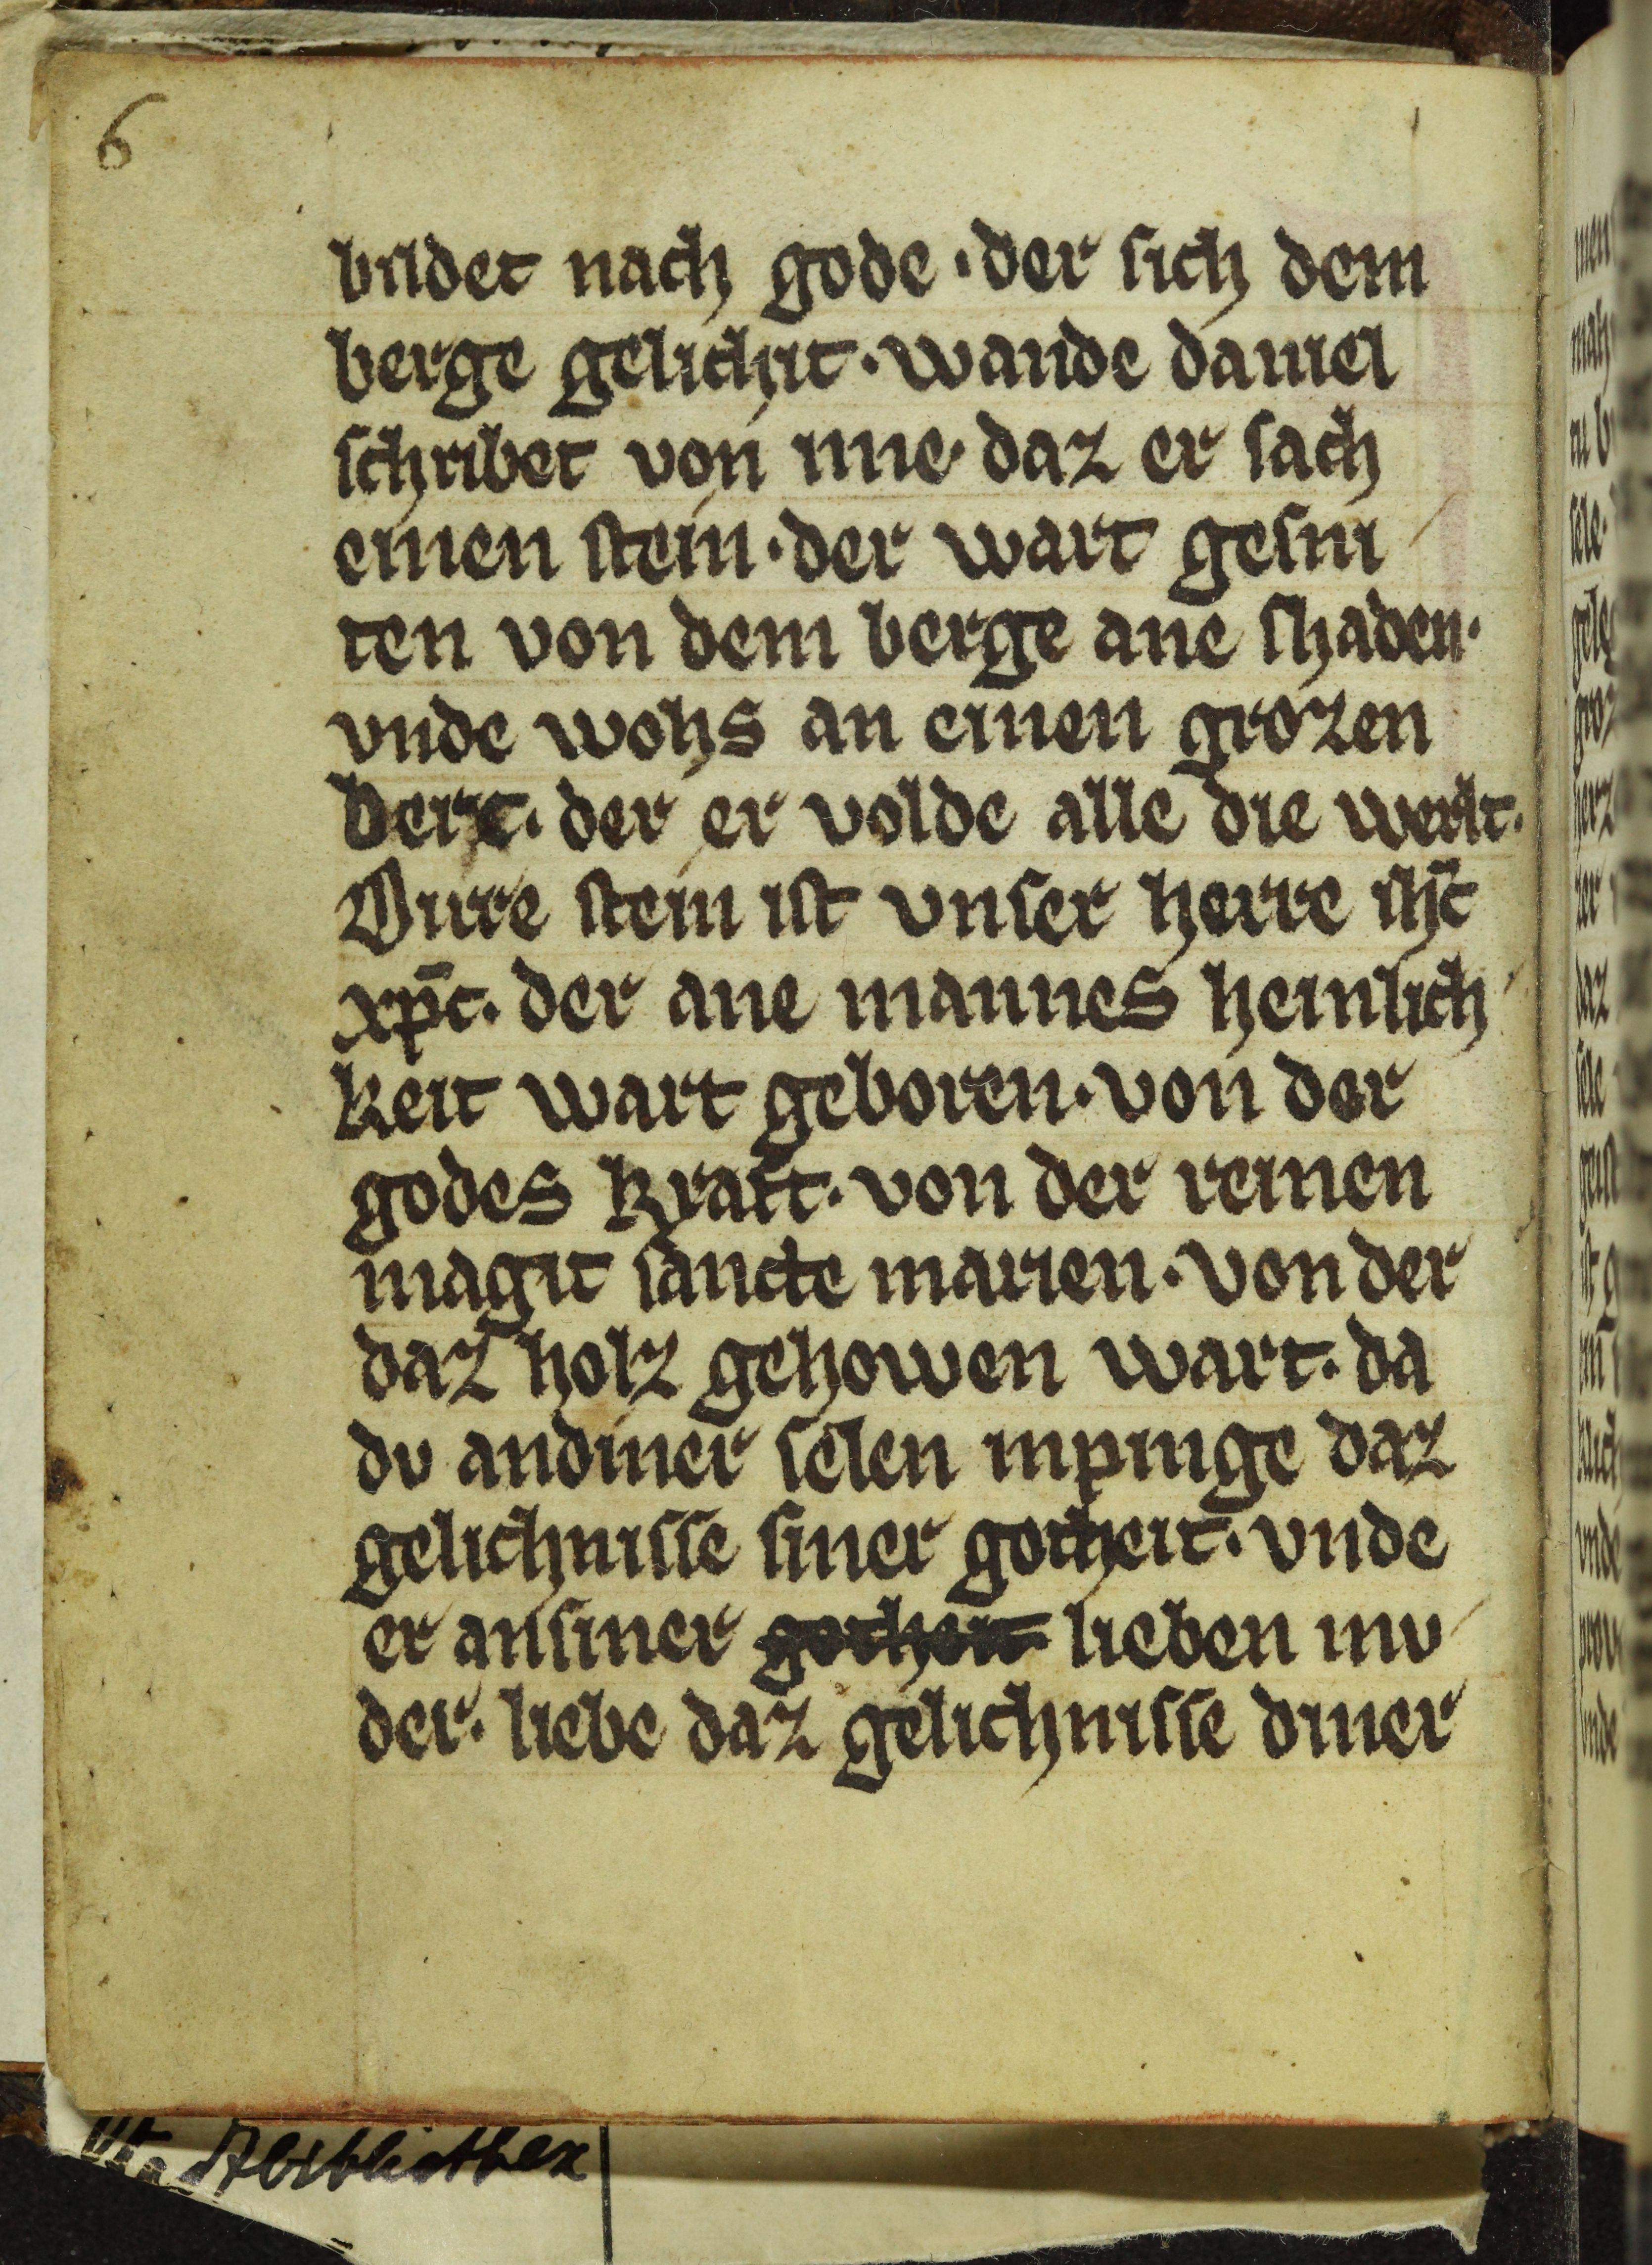 6
bildet nach gode · der sich dem
berge gelichit · wande daniel
schribet von ime · daz er sach
einen stein · der wart gesni
ten von dem berge ane shaden ·
vnde wohs an einen grozen
berc · der er volde alle die werlt ·
Dirre stein ist vnser herre ih̄c
xp̄c · der ane mannes heinlich
keit wart geboren · von der
godes kraft · von der reinen
magit sancte marien · von der
daz holz gehowen wart · da
dv andiner selen inpinge daz
gelichnisse siner gotheit · vnde
er ansiner gotheit lieben mv
der · liebe daz gelichnisse diner
Stadtbibliothek